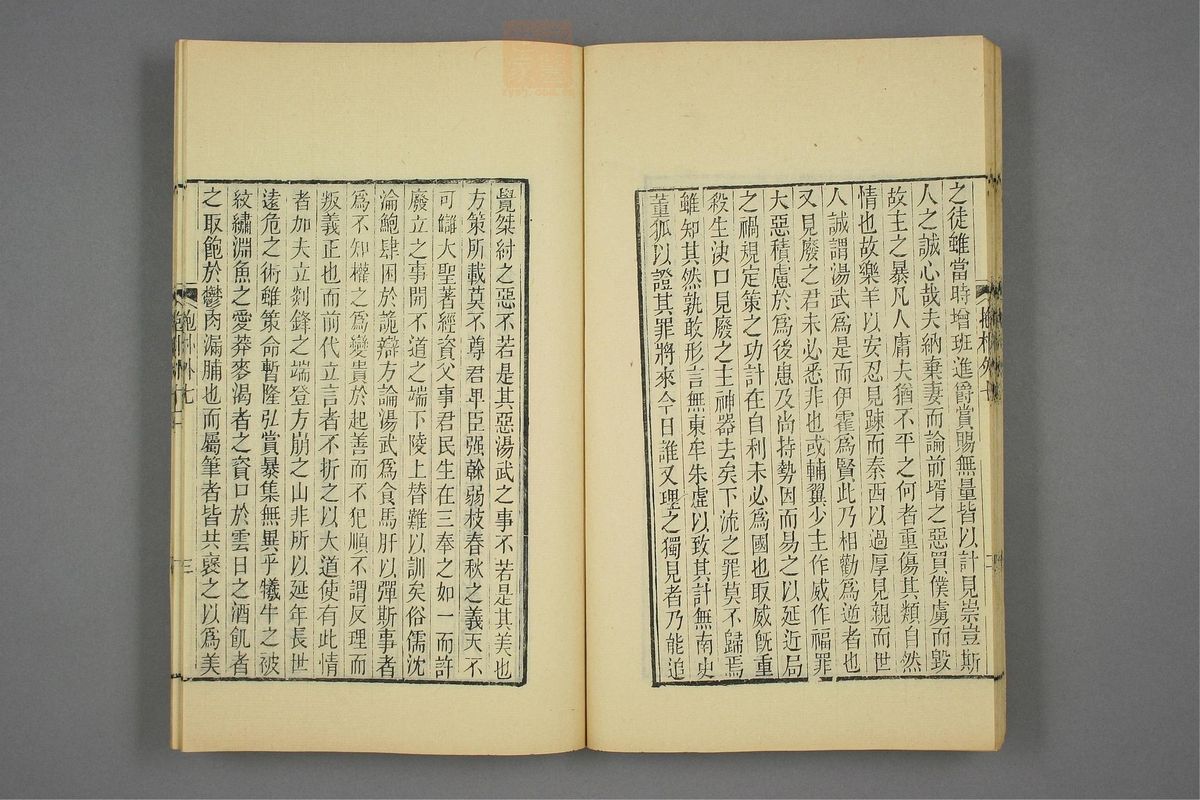 之徒雖當時增班進爵賞賜無量皆以計見崇豈斯
人之誠心哉夫納棄妻而論前壻之惡買僕虜而毀
故主之暴凡人庸夫猶不平之何者重傷其類自然
情也故樂羊以安忍見踈而秦西以過厚見親而世
人誠謂湯武爲是而伊霍爲賢此乃相勸爲逆者也
又見廢之君未必悉非也或輔翼少主作威作福罪
大惡積慮於爲後患及尚持勢因而易之以延近局
之禍規定策之功計在自利未必爲國也取威旣重
殺生决口見廢之主神器去矣下流之罪莫不歸焉
雖知其然孰敢形言無東牟朱虛以致其計無南史
董狐以證其罪將來今日誰又理之獨見者乃能追
覺桀紂之惡不若是其惡湯武之事不若是其美也
方策所載莫不尊君卑臣强榦弱枝春秋之義天不
可讎大聖著經資父事君民生在三奉之如一而許
廢立之事開不道之端下陵上替難以訓矣俗儒沈
淪鮑肆困於詭辯方論湯武爲食馬肝以彈斯事者
爲不知權之爲變貴於起善而不犯順不謂反理而
叛義正也而前代立言者不折之以大道使有此情
者加夫立剡鋒之端登方崩之山非所以延年長世
遠危之術雖策命暫隆弘賞暴集無異乎犧牛之被
紋繡淵魚之愛莽麥渴者之資口於雲日之酒飢者
之取飽於鬱肉漏脯也而屬筆者皆共襃之以爲美
抱朴外七
三